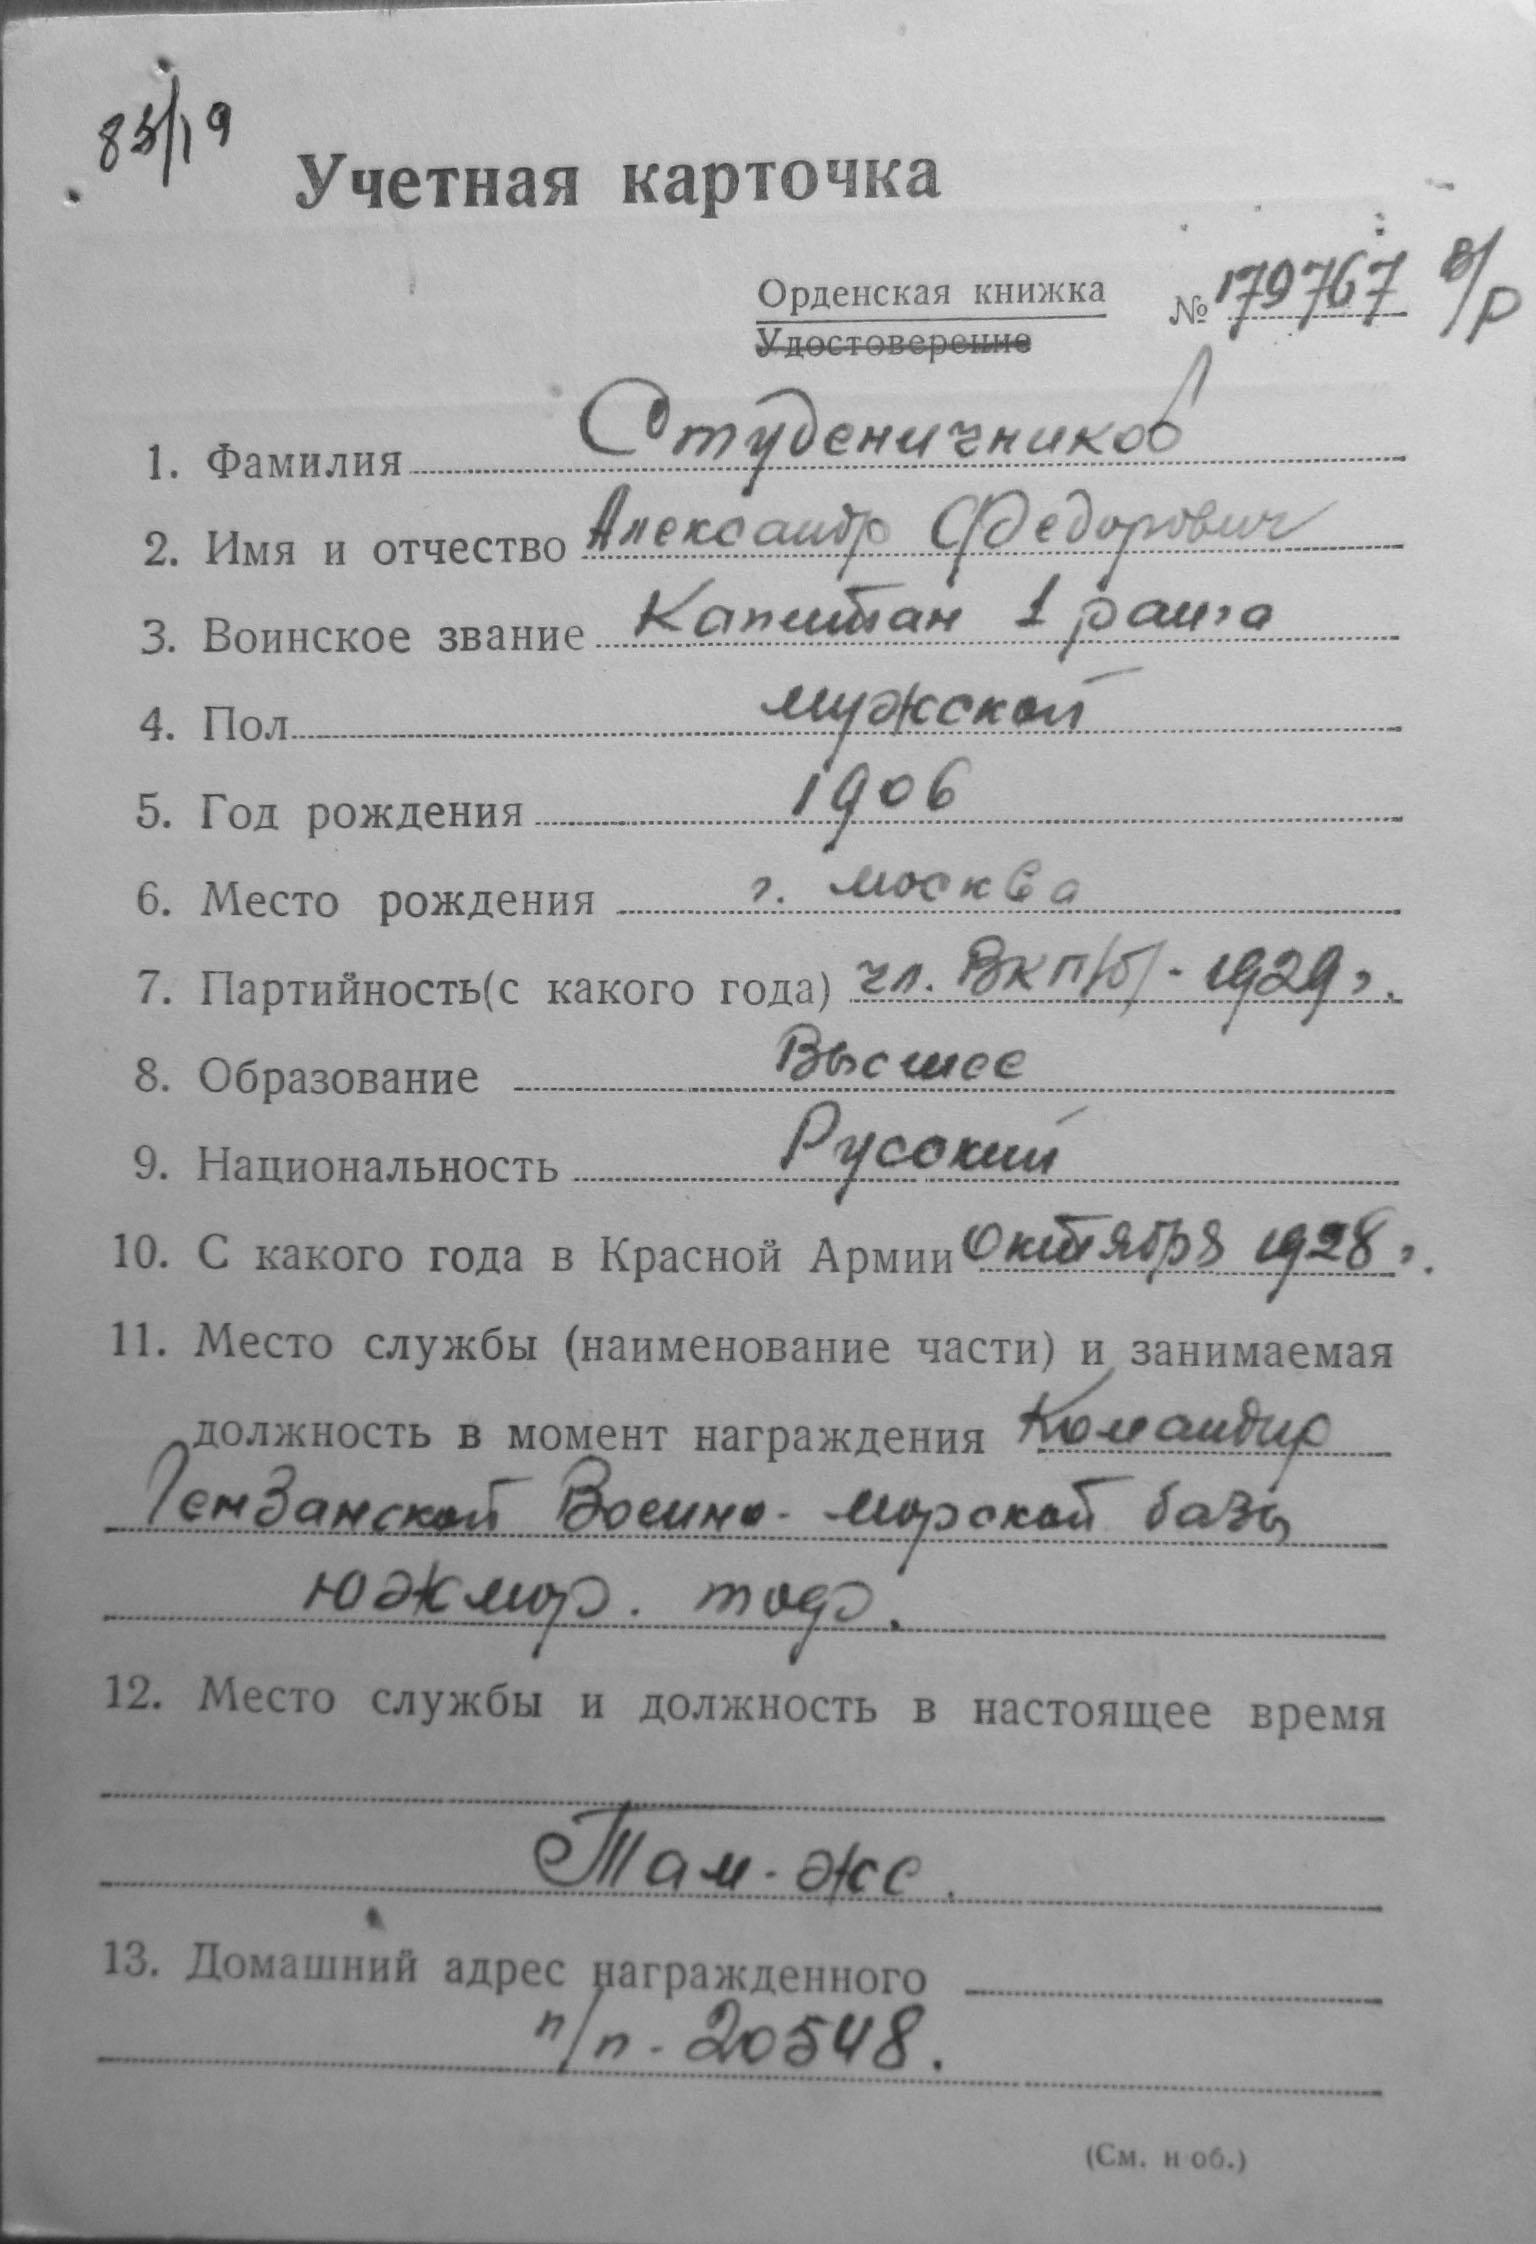 83/19
Учетная карточка
Орденская книжка № 179767 в/р
Удостоверение
1. Фамилия Студеничников
2. Имя и отчество Александр Федорович
3. Воинское звание Капитан 1 ранга
4. Пол мужской
5. Год рождения 1906
6. Место рождения г. Москва
7. Партийность (с какого года) чл. ВКП/б/ - 1929 г.
8. Образование Высшее
9. Национальность Русский
10. С какого года в Красной Армии Октября 1928 г.
11. Место службы (наименование части) и занимаемая
должность в момент награждения Командир
ГенЗанской Военно-морской базы
Южмор.
12. Место службы и должность в настоящее время
Там-же.
13. Домашний адрес награжденного
п/п - 20548.
(См. н об.)